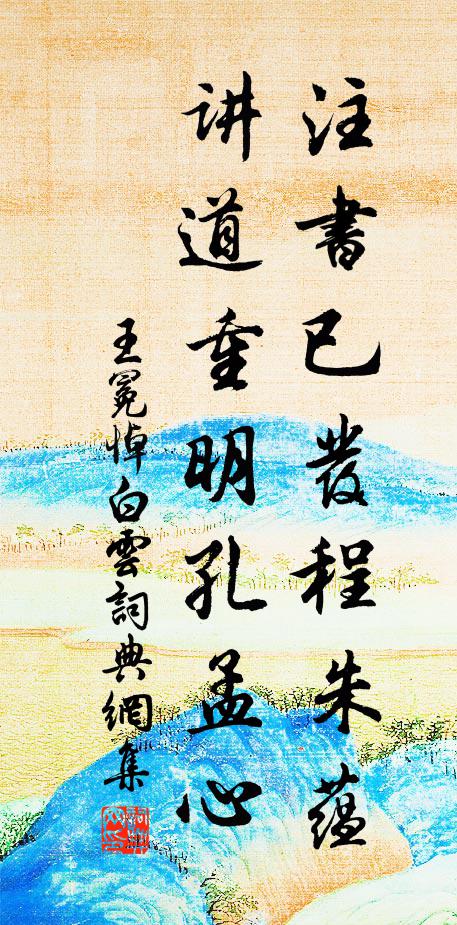 注書已發程朱蘊
讲道重明孔孟心
王冕悼白雲詞典網集